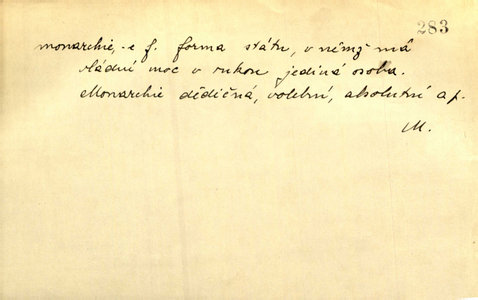 283
monarchie, -e f. forma státu, v němž má
vládní moc v rukou jediná osoba.
Monarchie dědičná, volební, absolutní a p.
M.